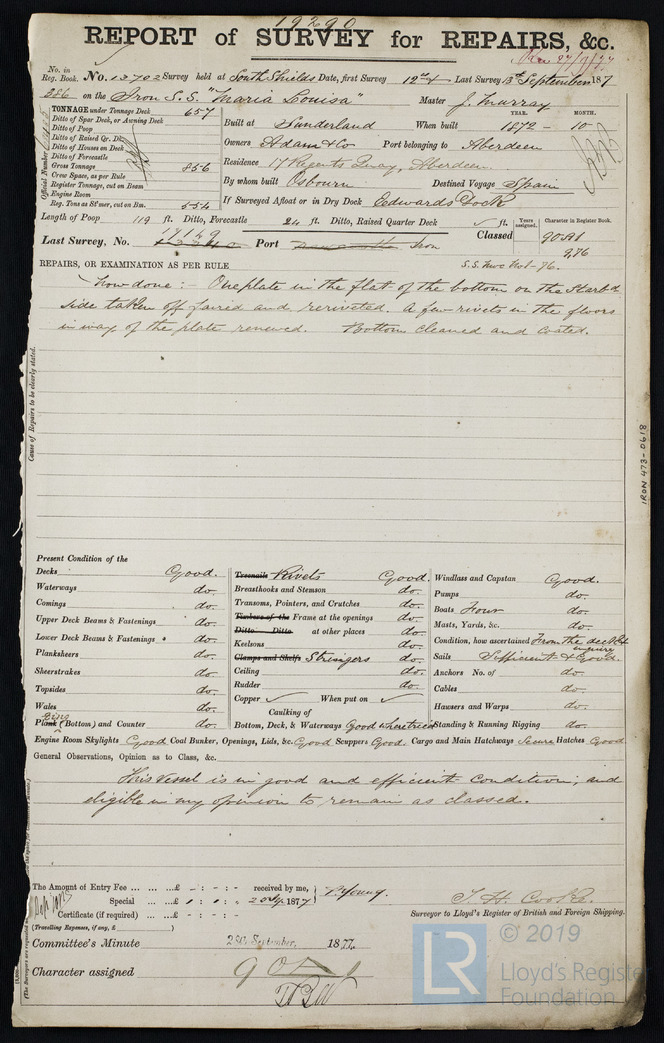 19290
REPORT of SURVEY for REPAIRS, &c.
No. in Reg. Book. No. 13702 Survey held at South Shields Date, first Survey 12th Last Survey 13th September 187
286 on the Iron S.S. "Maria Louisa" Master J. Murray
TONNAGE under Tonnage Deck 657
Ditto of Spar Deck, or Awning Deck
Ditto of Poop
Ditto of Raised Qr. Dk
Ditto of Houses on Deck
Ditto of Forecastle
Gross Tonnage 856
Crew Space, as per Rule
Register Tonnage, cut on Beam
Engine Room
Reg. Tons as St'mer, cut on Bm. 554
Official Number
Built at Sunderland When built YEAR. 1872 MONTH. 10
Owners Adam & Co Port belonging to Aberdeen
Residence 17 Regents Quay, Aberdeen
By whom built Osbourn Destined Voyage Spain
If Surveyed Afloat or in Dry Dock Edwards Dock
Length of Poop 119 ft. Ditto, Forecastle 24 ft. Ditto, Raised Quarter Deck ft.
Years assigned. Character in Register Book.
17149
Last Survey, No. Port Iron Classed 90 A1
9,76
REPAIRS, OR EXAMINATION AS PER RULE
Now done:- One plate in the flat of the bottom on the Starbd
side taken off faired and rerivetted. A few rivets in the floors
in way of the plate renewed. Bottom cleaned and coated.
Cause of Repairs to be clearly stated.
IRON 473-0618
Present Condition of the
Decks Good.
Waterways do.
Comings do.
Upper Deck Beams & Fastenings do.
Lower Deck Beams & Fastenings do.
Planksheers do.
Sheerstrakes do.
Topsides do.
Wales do.
Plank (Bottom) and Counter do.
Treenails Rivets Good.
Breasthooks and Stemson do.
Transoms, Pointers, and Crutches do.
Timbers of the Frame at the openings do.
Ditto Ditto at other places do.
Keelsons do.
Clamps and Shelfs Stringers do.
Ceiling do.
Rudder do.
Copper When put on
Caulking of
Bottom, Deck, & Waterways Good where tried
Windlass and Capstan Good.
Pumps do.
Boats Four do.
Masts, Yards, &c. do.
Condition, how ascertained From the deck & enquiry
Sails Sufficient & Good.
Anchors No. of do.
Cables do.
Hawsers and Warps do.
Standing & Running Rigging do.
Engine Room Skylights Good Coal Bunker, Openings, Lids, &c. Good Scuppers Good. Cargo and Main Hatchways Secure Hatches Good
General Observations, Opinion as to Class, &c.
This vessel is in good and efficient condition; and
eligible in my opinion to remain as classed.
The Amount of Entry Fee ... £ - : - : - received by me,
Special ... £ 1 : 1 : - 1877 P. Young.
Certificate (if required) ... - : - : -
(Travelling Expenses, if any, £ )
T. H. Cooke.
Surveyor to Lloyd's Register of British and Foreign Shipping.
Committee's Minute 28th September, 1877.
Character assigned 90 A 1
LR
© 2019
Lloyd's Register
Foundation